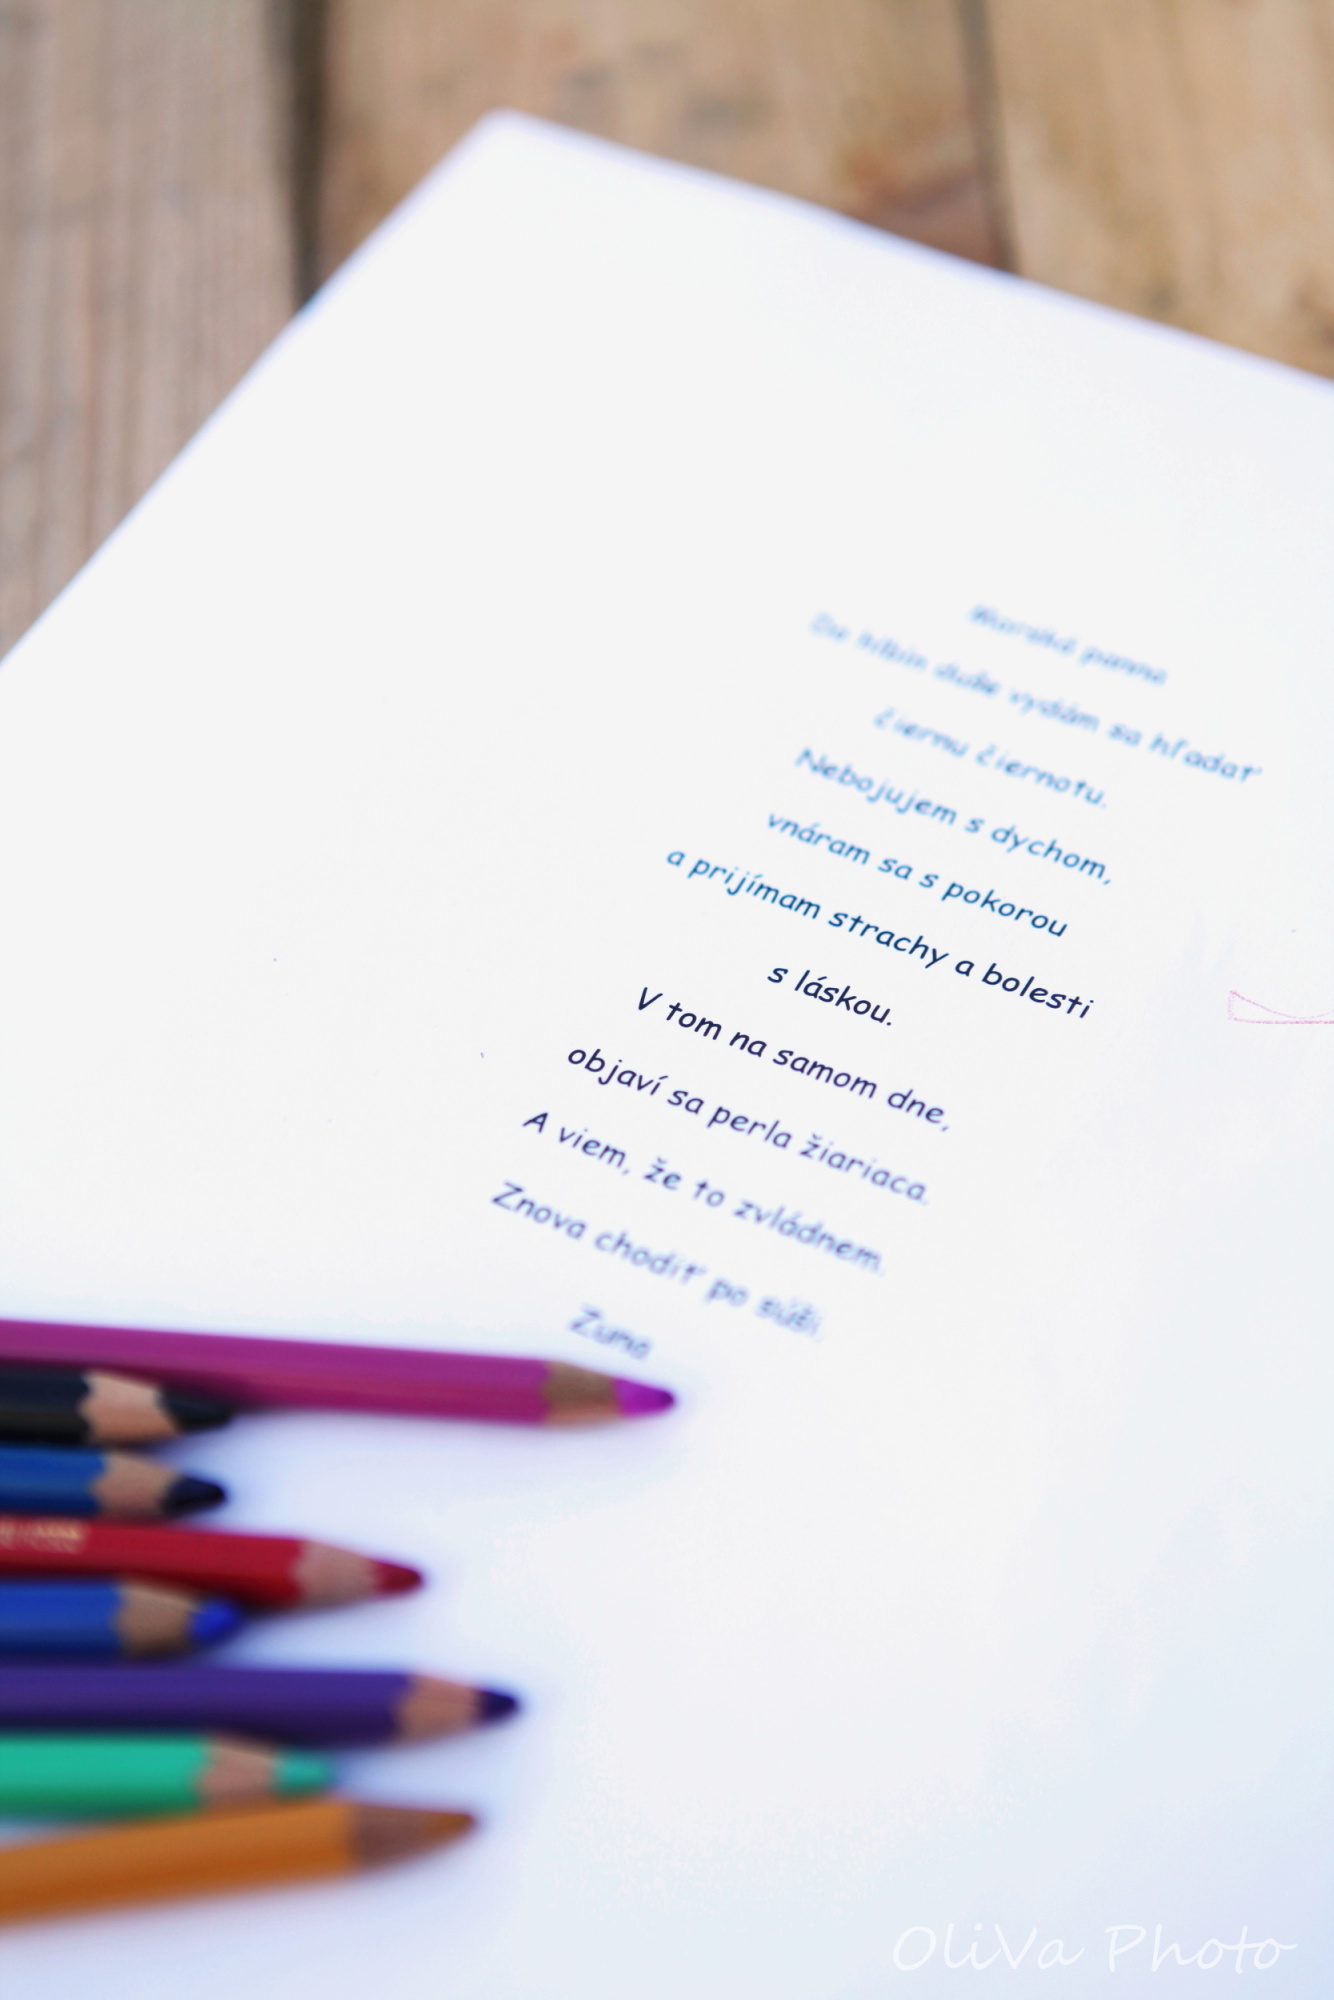 Morská panna
Do hlbín duše vydám sa hľadať
čiernu čiernotu.
Nebojujem s dychom,
vnáram sa s pokorou
a prijímam strachy a bolesti
s láskou.
V tom na samom dne,
objaví sa perla žiariaca.
A viem, že to zvládnem.
Znova chodiť po súši.
Zuna
OliVa Photo